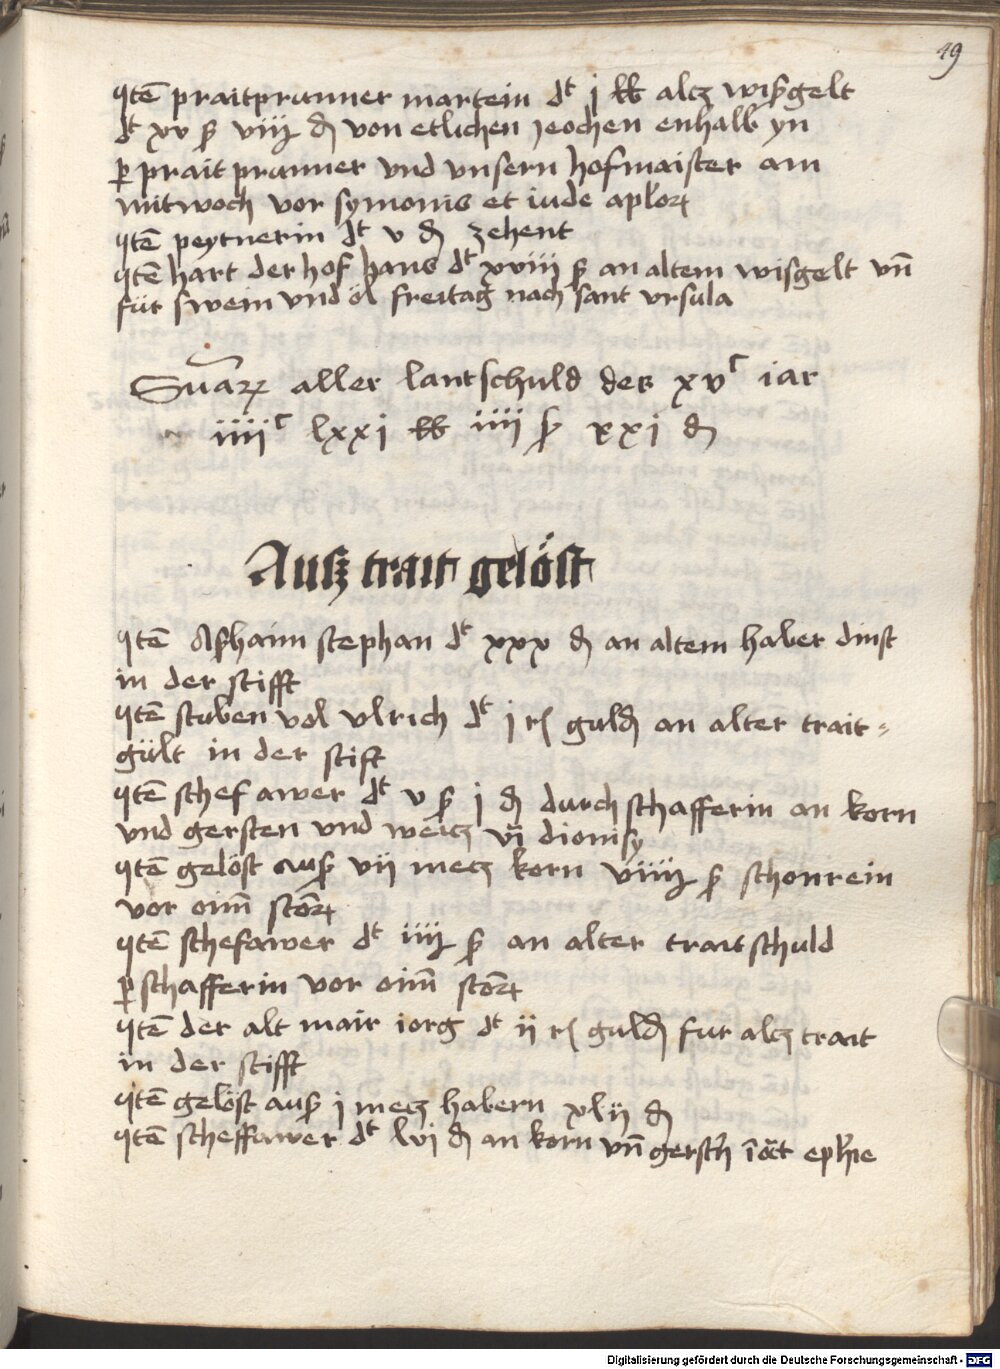 49
Itē praitprunner martein dt j lb altz wisgelt
dt xv ß viij d von etlichen jeochen enhalb yn
p praitprunner vnd vnsern hofmaister am
mitwoch vor symonis et iude aplor
Itē peytnerin dt v d zehent
Itē hart der hof hans dt xviii ß an altem wisgelt vn̄
für swein vnd öl freitag nach sant vrsula
Suma aller lantschuld des xvc iar
iiiic lxxi lb iiii ß xxi d
Ausz trait gelöst
Itē stephan dt xxx d an altem haber dinst
in der stifft
Itē stuben vol vlrich dt j r guld an alter trait-
gült in der stift
Itē schefawer dt v ß j d durch schafferin an korn
vnd gersten vnd weitz dionisy
Itē gelöst aus vij metz korn viiij ß schonrein
vor oim̄ scor
Itē schefawer dt iiij ß an alter traitschuld
p schafferin vor oim̄ scor
Itē der alt mair iorg dt ij r guld fur altz trait
in der stifft
Itē gelöst aus j metz habern xlij d
Itē scheffawer dt lvi d an korn vn̄ gerstn ephie
Digitalisierung gefördert durch die Deutsche Forschungsgemeinschaft - DFG